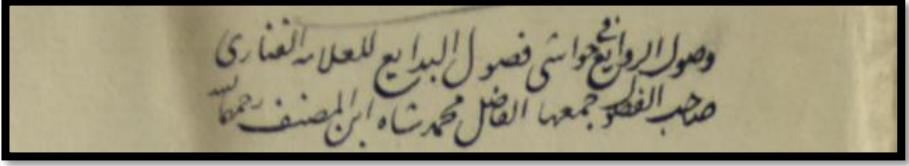 وصول الروايع في حواشي فصول البدايع للعلامه الفناري
صاحب الفصول جمعها الفاضل محمد شاه ابن المصنف رحمهما الله